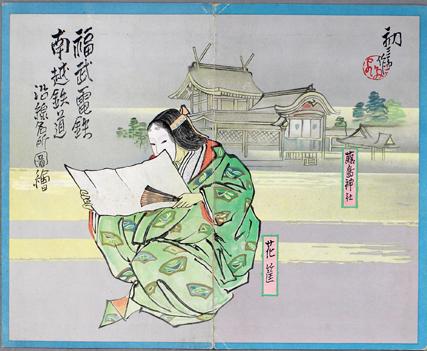 福武電鉄
南越鉄道
沿線名所図絵
初三郎作
藤島神社
花筐